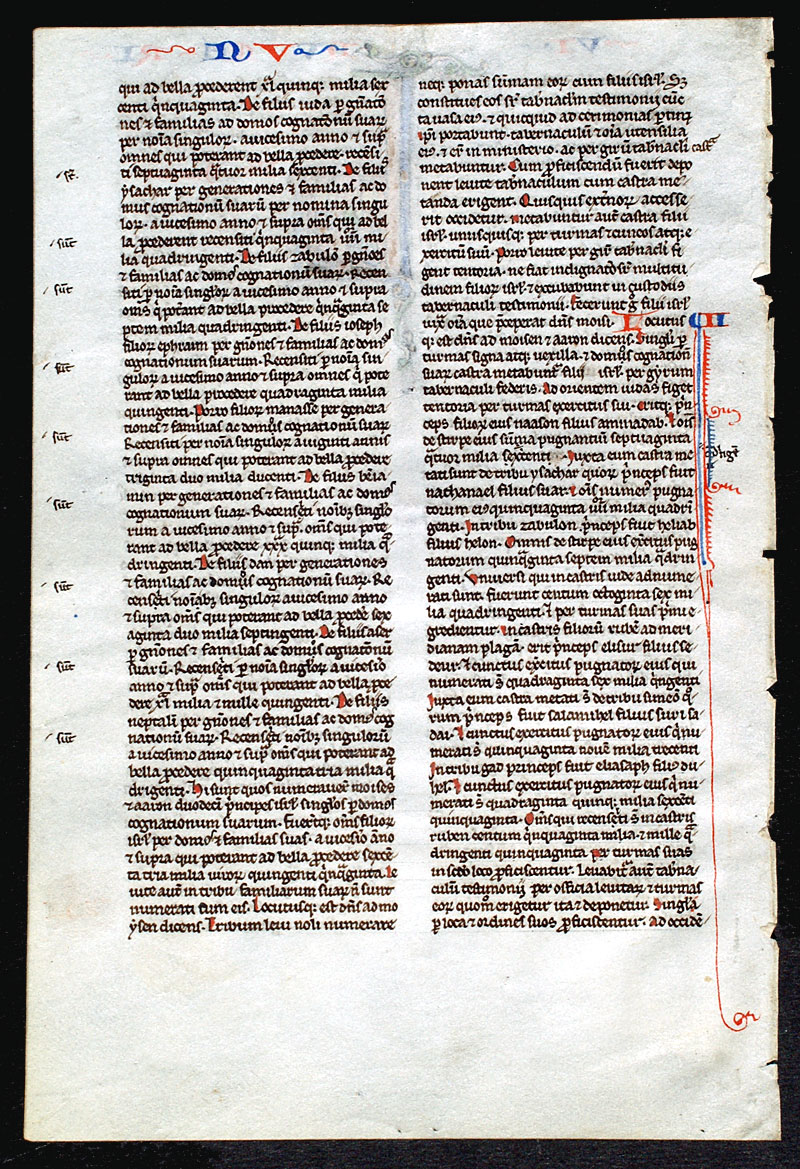 NV
qui ad bella ꝓcederent xl quinqꝫ milia sex
centi q̃nquaginta. De filiis iuda ꝑ gñatõ
nes ⁊ familias ad domos cognatõnũ suaꝝ
per noĩa singuloꝝ. a uicesimo anno ⁊ sup̃
omnes qui poterant ad bella ꝓcedere. recẽsi
ti septuaginta q̃tuor milia sexcenti. De filiis
ysachar per generationes ⁊ familias ac do
mus cognationũ suarũ per nomina singu
loꝝ. a uicesimo anno ⁊ supra om̃s qui ad bel
la ꝓcederent recensiti q̃nquaginta iiii mi
lia quadringenti. De filiis zabulõ ꝑ gñões
⁊ familias ac domꝰ cognationũ suaꝝ. Recen
siti ꝑ noĩa singl̃oꝝ a uicesimo anno ⁊ supra
om̃s q̃ pot̃ant ad bella ꝓcedere q̃nq̃ginta se
ptem milia quadringenti. De filiis ioseph
filioꝝ ephraim per gñiones ⁊ familias ac domꝰ
cognationum suarum. Recensiti ꝑ noĩa sin
guloꝝ a uicesimo anno ⁊ supra omnes q̃ pote
rant ad bella procedere quadraginta milia
quingenti. Porro filioꝝ manasse per genera
tiones ⁊ familias ac domos cognationũ suaꝝ
Recensiti per noĩa singuloꝝ a uiginti annis
⁊ supra omnes qui poterant ad bella ꝓcedere
triginta duo milia ducenti. De filiis beĩa
min per generationes ⁊ familias ac domos
cognationum suaꝝ. Recensẽti noĩbꝫ singlo
rum a uicesimo anno ⁊ sup̃. om̃s qui pote
rant ad bella ꝓcedere xxx quinqꝫ milia q̃
dringenti. De filiis dan per generationes
⁊ familias ac domos cognationũ suaꝝ. Re
censẽti noĩabꝫ singuloꝝ a uicesimo anno
⁊ supra om̃s qui poterant ad bella ꝓcedẽ sex
aginta duo milia septingenti. De filiis aser
ꝑ gñiones ⁊ familias ac domos cognatõnũ
suaꝝ. Recensẽti ꝑ noĩa singl̃oꝝ a uicesĩo
anno ⁊ sup̃ om̃s qui poterant ad bella ꝓce
dere xl milia ⁊ mille quingenti. De filiis
neptalĩ per gñiones ⁊ familias ac domos cog
nationũ suaꝝ. Recensẽti noĩbꝫ singulorũ
a uicesimo anno ⁊ sup̃ om̃s qui poterant ad
bella ꝓcedere quinquaginta tria milia q̃
dringenti. Hi sunt quos numerauer̃t moises
⁊ aaron duodecĩ p̃ncipes isrl̃. singl̃os ꝑ domos
cognationum suarum. Fuer̃tqꝫ om̃s filioꝝ
isrl̃ per domos ⁊ familias suas. a uicesĩo ãno
⁊ supra qui poterant ad bella ꝓcedere sexcẽ
ta tria milia uiroꝝ quingenti q̃nq̃ginta. Le
uite aut̃ in tribu familiarum suaꝝ ñ sunt
numerati cum eis. Locutusqꝫ est dñs ad mo
ysen dicens. Tribum leui noli numerare
neqꝫ ponas sũmam eoꝝ cum filiis isrl̃. Sꝫ
constitues eos sr̃ tab̃naclm̃ testimonii cũc
ta uasa eiꝰ. ⁊ quicquid ad cerimonias ꝑtinꝫ
ip̃i portabunt. tabernaculũ ⁊ oĩa utensilia
eiꝰ. ⁊ er̃t in ministerio. ac per girũ tab̃nacli castͣ
metabuntur. Cum ꝓficiscendũ fuerit depo
nent leuite tab̃naculum cum castra me
tanda erigent. Quisquis ext̃noꝝ accesse
rit occidetur. Metabuntur aut̃ castra filii
isrl̃. unusquisqꝫ per turmas ⁊ cuneos atqꝫ e
xercitũ suũ. Porro leuite per girũ tab̃nacli fi
gent tentoria. ne fiat indignatõ sr̃ multitu
dinem filioꝝ isrl̃. ⁊ excubabunt in custodiis
tabernaculi testimonii. Fecerunt g̃ filii isrl̃
iuxᵃ oĩa que p̃ceperat dñs moisi. Locutus II
qꝫ est dñs ad moisen ⁊ aaron dicens. Singl̃i ꝑ
turmas signa atqꝫ uexilla. ⁊ domos cognatiõn
suaꝝ castra metabunt̃ filii isrl̃. per gyrum
tabernaculi federis. Ad orientem iudas figet
tentoria per turmas exercitus sui. eritqꝫ p̃n
ceps filioꝝ eius naason filius aminadab. ⁊ oĩs
de stirpe eius sũma pugnantiũ septuaginta
q̃tuor milia sexcenti. Iuxta eum castra me
tati sunt de tribu ysachar quoꝝ p̃nceps fuit
nathanael filius suar. ⁊ oĩs numerꝰ pugna
torum eiꝰ quinquaginta iiii milia quadrĩ
genti. In tribu zabulon p̃nceps fuit heliab
filius helon. Omnis de stirpe eius ex̃citus pug
natorum quinq̃ginta septem milia q̃drin
genti. Vniuersi qui in castris iude adnume
rati sunt. fuerunt centum octoginta sex mi
lia quadringenti. ⁊ per turmas suas p̃mi e
gredientur. In castris filiorũ rubẽ ad meri
dianam plagã. erit p̃nceps elisur filius se
deur. ⁊ cunctus ex̃citus pugnatoꝝ eius qui
numerati s̃ quadraginta sex milia q̃ngenti
Iuxta eum castra metati s̃ de tribu simeõ q̃
rum p̃nceps fuit salamihel filius suri sa
dai. ⁊ cunctus exercitus pugnatoꝝ eius q̃ nu
merati s̃ quinquaginta nouẽ milia trecenti
In tribu gad princeps fuit eliasaph filiꝰ du
hel. ⁊ cunctus exercitus pugnatoꝝ eius q̃ nu
merati s̃ quadraginta quinqꝫ milia sexcẽti
quinquaginta. Om̃s qui recensiti s̃ in castris
ruben centum q̃nquaginta milia. ⁊ mille q̃
dringenti quinquaginta per turmas suas
in sc̃do loco ꝓficiscentur. Leuabit̃ aut̃ tab̃na
culũ testimonij per officia leuitaꝝ ⁊ turmas
eoꝝ quom̃ erigetur ita ⁊ deponetur. Singl̃a
ꝑ loca ⁊ ordines suos ꝓficiscentur. ad occidẽ